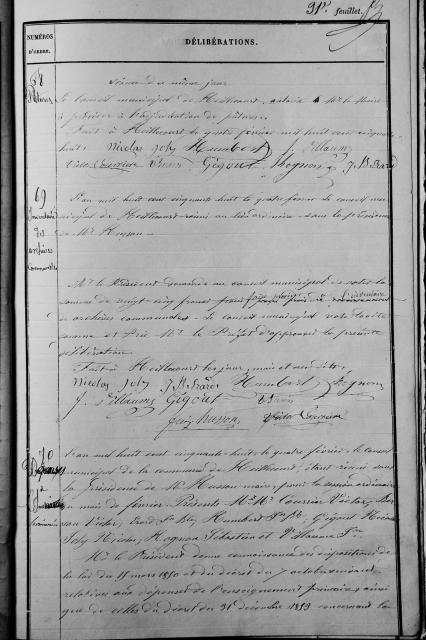 91e feuillet.
NUMÉROS
D'ORDRE.
DÉLIBÉRATIONS.
68
Séance du même jour
Le Conseil municipal de Heillecourt, autorise Mr le Maire
à procéder à l'adjudication de pâtures.
Fait à Heillecourt le quatre février mil huit cent cinquante
huit. Nicolas Joly Humbert J. Villaume
Victor Husson Gégout Hognon J. Bt Erard
69
Inventaire
des
archives
communales
L'an mil huit cent cinquante huit le quatre février le conseil mu-
nicipal de Heillecourt réuni au lieu ordinaire sous la présidence
de Mr Husson.
Mr le Président demande au conseil municipal de voter la
somme de vingt cinq francs pour l'inventaire
des archives communales. Le conseil municipal vote ladite
somme et prie Mr le Préfet d'approuver la présente
délibération.
Fait à Heillecourt les jour, mois et an dits.
Nicolas Joly J. Bt Erard Humbert Hognon
J. Villaume Gégout
Husson Victor
70
L'an mil huit cent cinquante huit, le quatre février, le conseil
municipal de la commune de Heillecourt, étant réuni sous
la Présidence de Mr Husson maire, pour la session ordinaire
du mois de février. Présents Mrs Victor,
Victor, Erard J. Bte, Humbert Gégout
Joly Nicolas, Hognon Sébastien et Villaume Jn.
Mr le Président donne connaissance des dispositions de
la loi du 15 mars 1850 et du décret du 7 octobre suivant
relatives aux dépenses de l'enseignement primaire, ainsi
que de celles du décret du 31 décembre 1853 concernant la